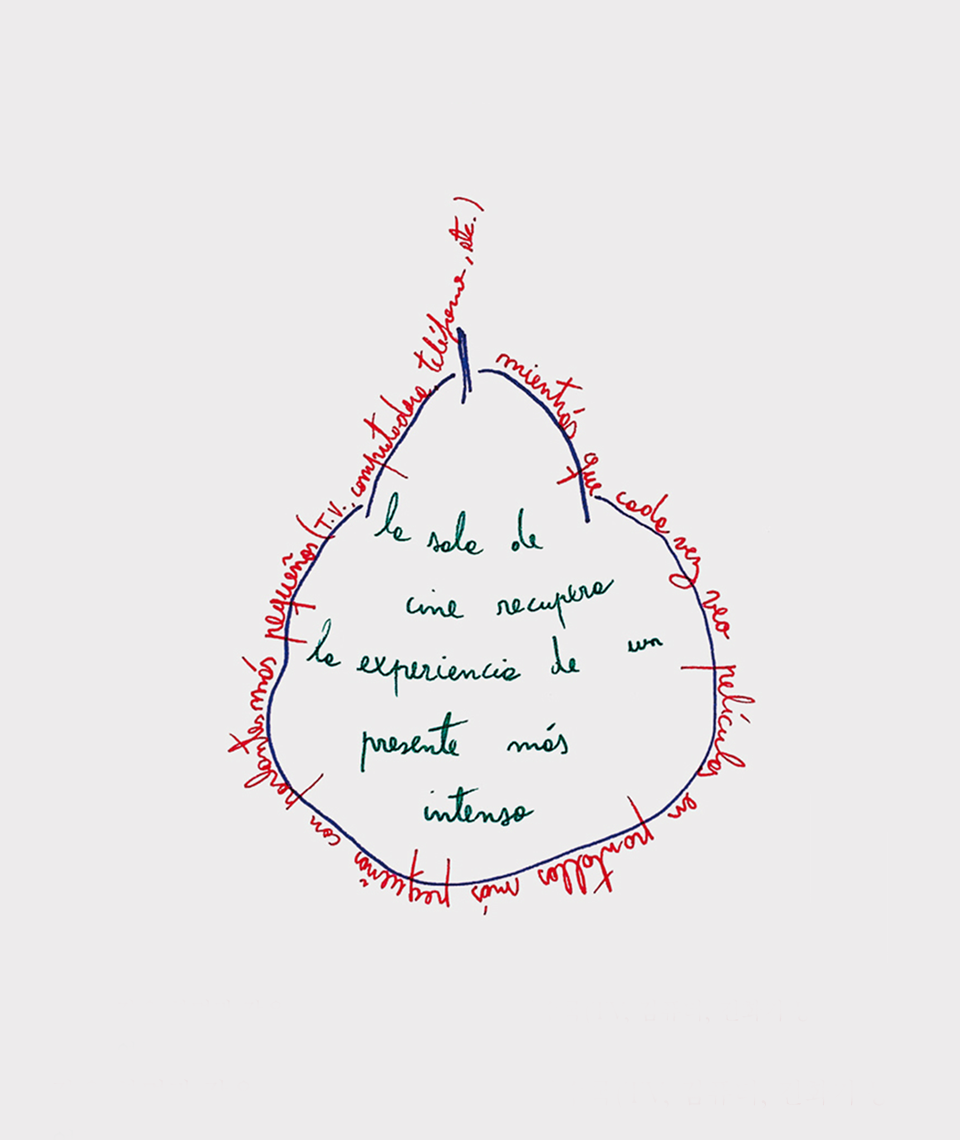 la sala de
cine recupera
la experiencia de un
presente más
intenso
mientrás que cada vez veo películas en pantallas más pequeñas con parlantes más pequeños (T.V., computadora, teléfono, etc.)